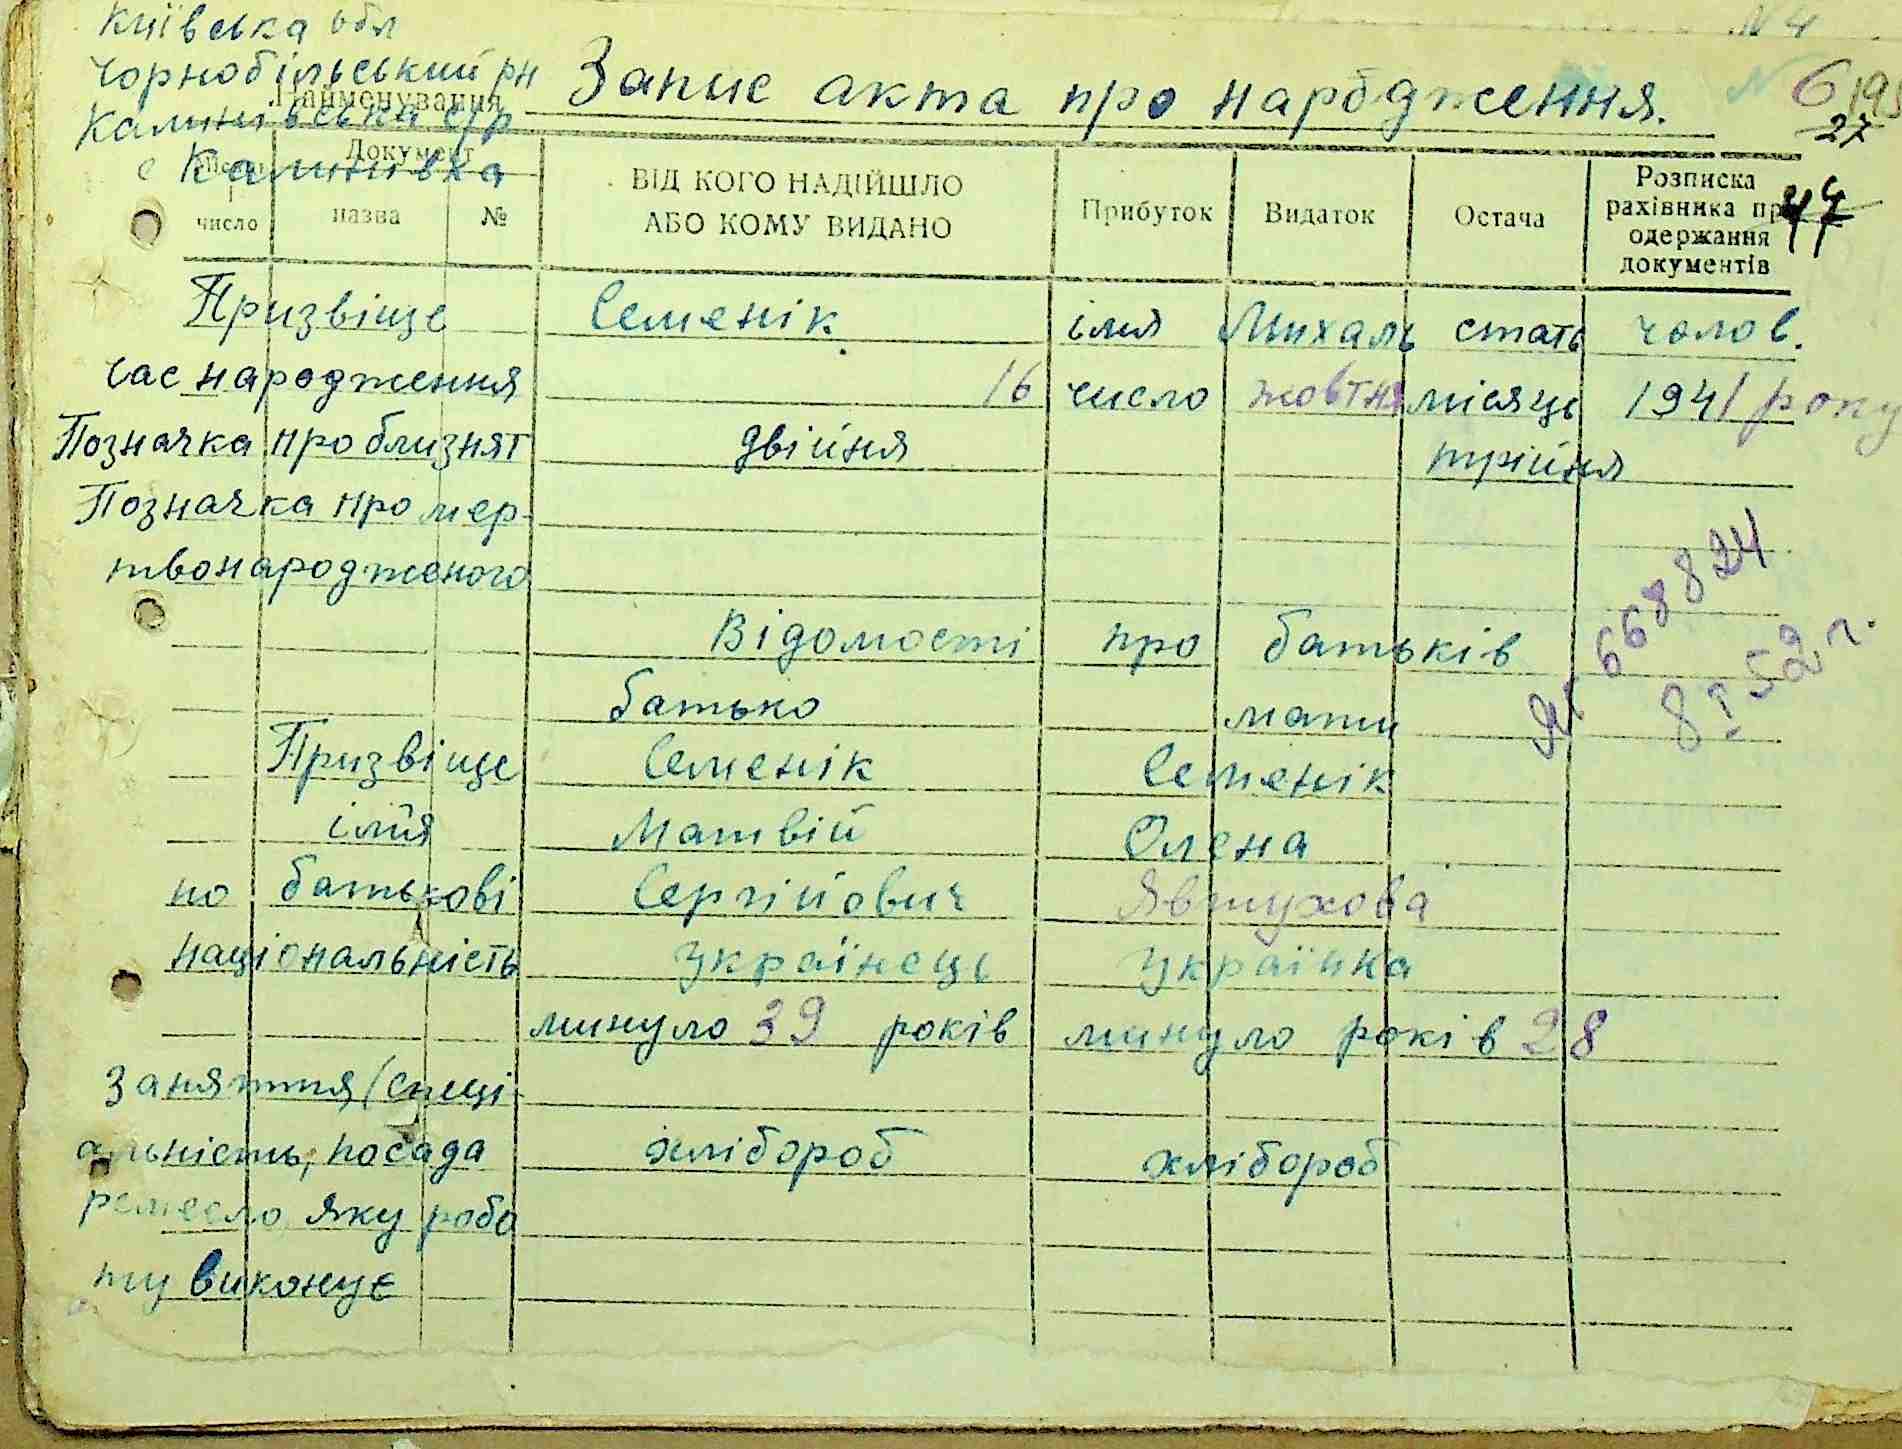 Київська обл
Чорнобільський рн
Калинівська с/р
с Калинівка
N 4
Запис акта про народження.
N 6
27
Найменування
Документ
число назва №
ВІД КОГО НАДІЙШЛО
АБО КОМУ ВИДАНО
Прибуток Видаток Остача
Розписка
рахівника про
одержання
документів
44
Призвіще Семенік імя Михаль стать чолов.
Час народження 16 число жовтня місяць 1941 року
Позначка про близнят двійня трійня
Позначка про мер-
твонародженого
Відомості про батьків
батько мати
Призвіще Семенік Семенік
імя Матвій Олена
по батькові Сергійович Явтухова
національність українець українка
минуло 39 років минуло років 28
Заняття (спеці-
альність, посада хлібороб хлібороб
ремесло яку робо
ту виконує
668824
8 I 52 г.